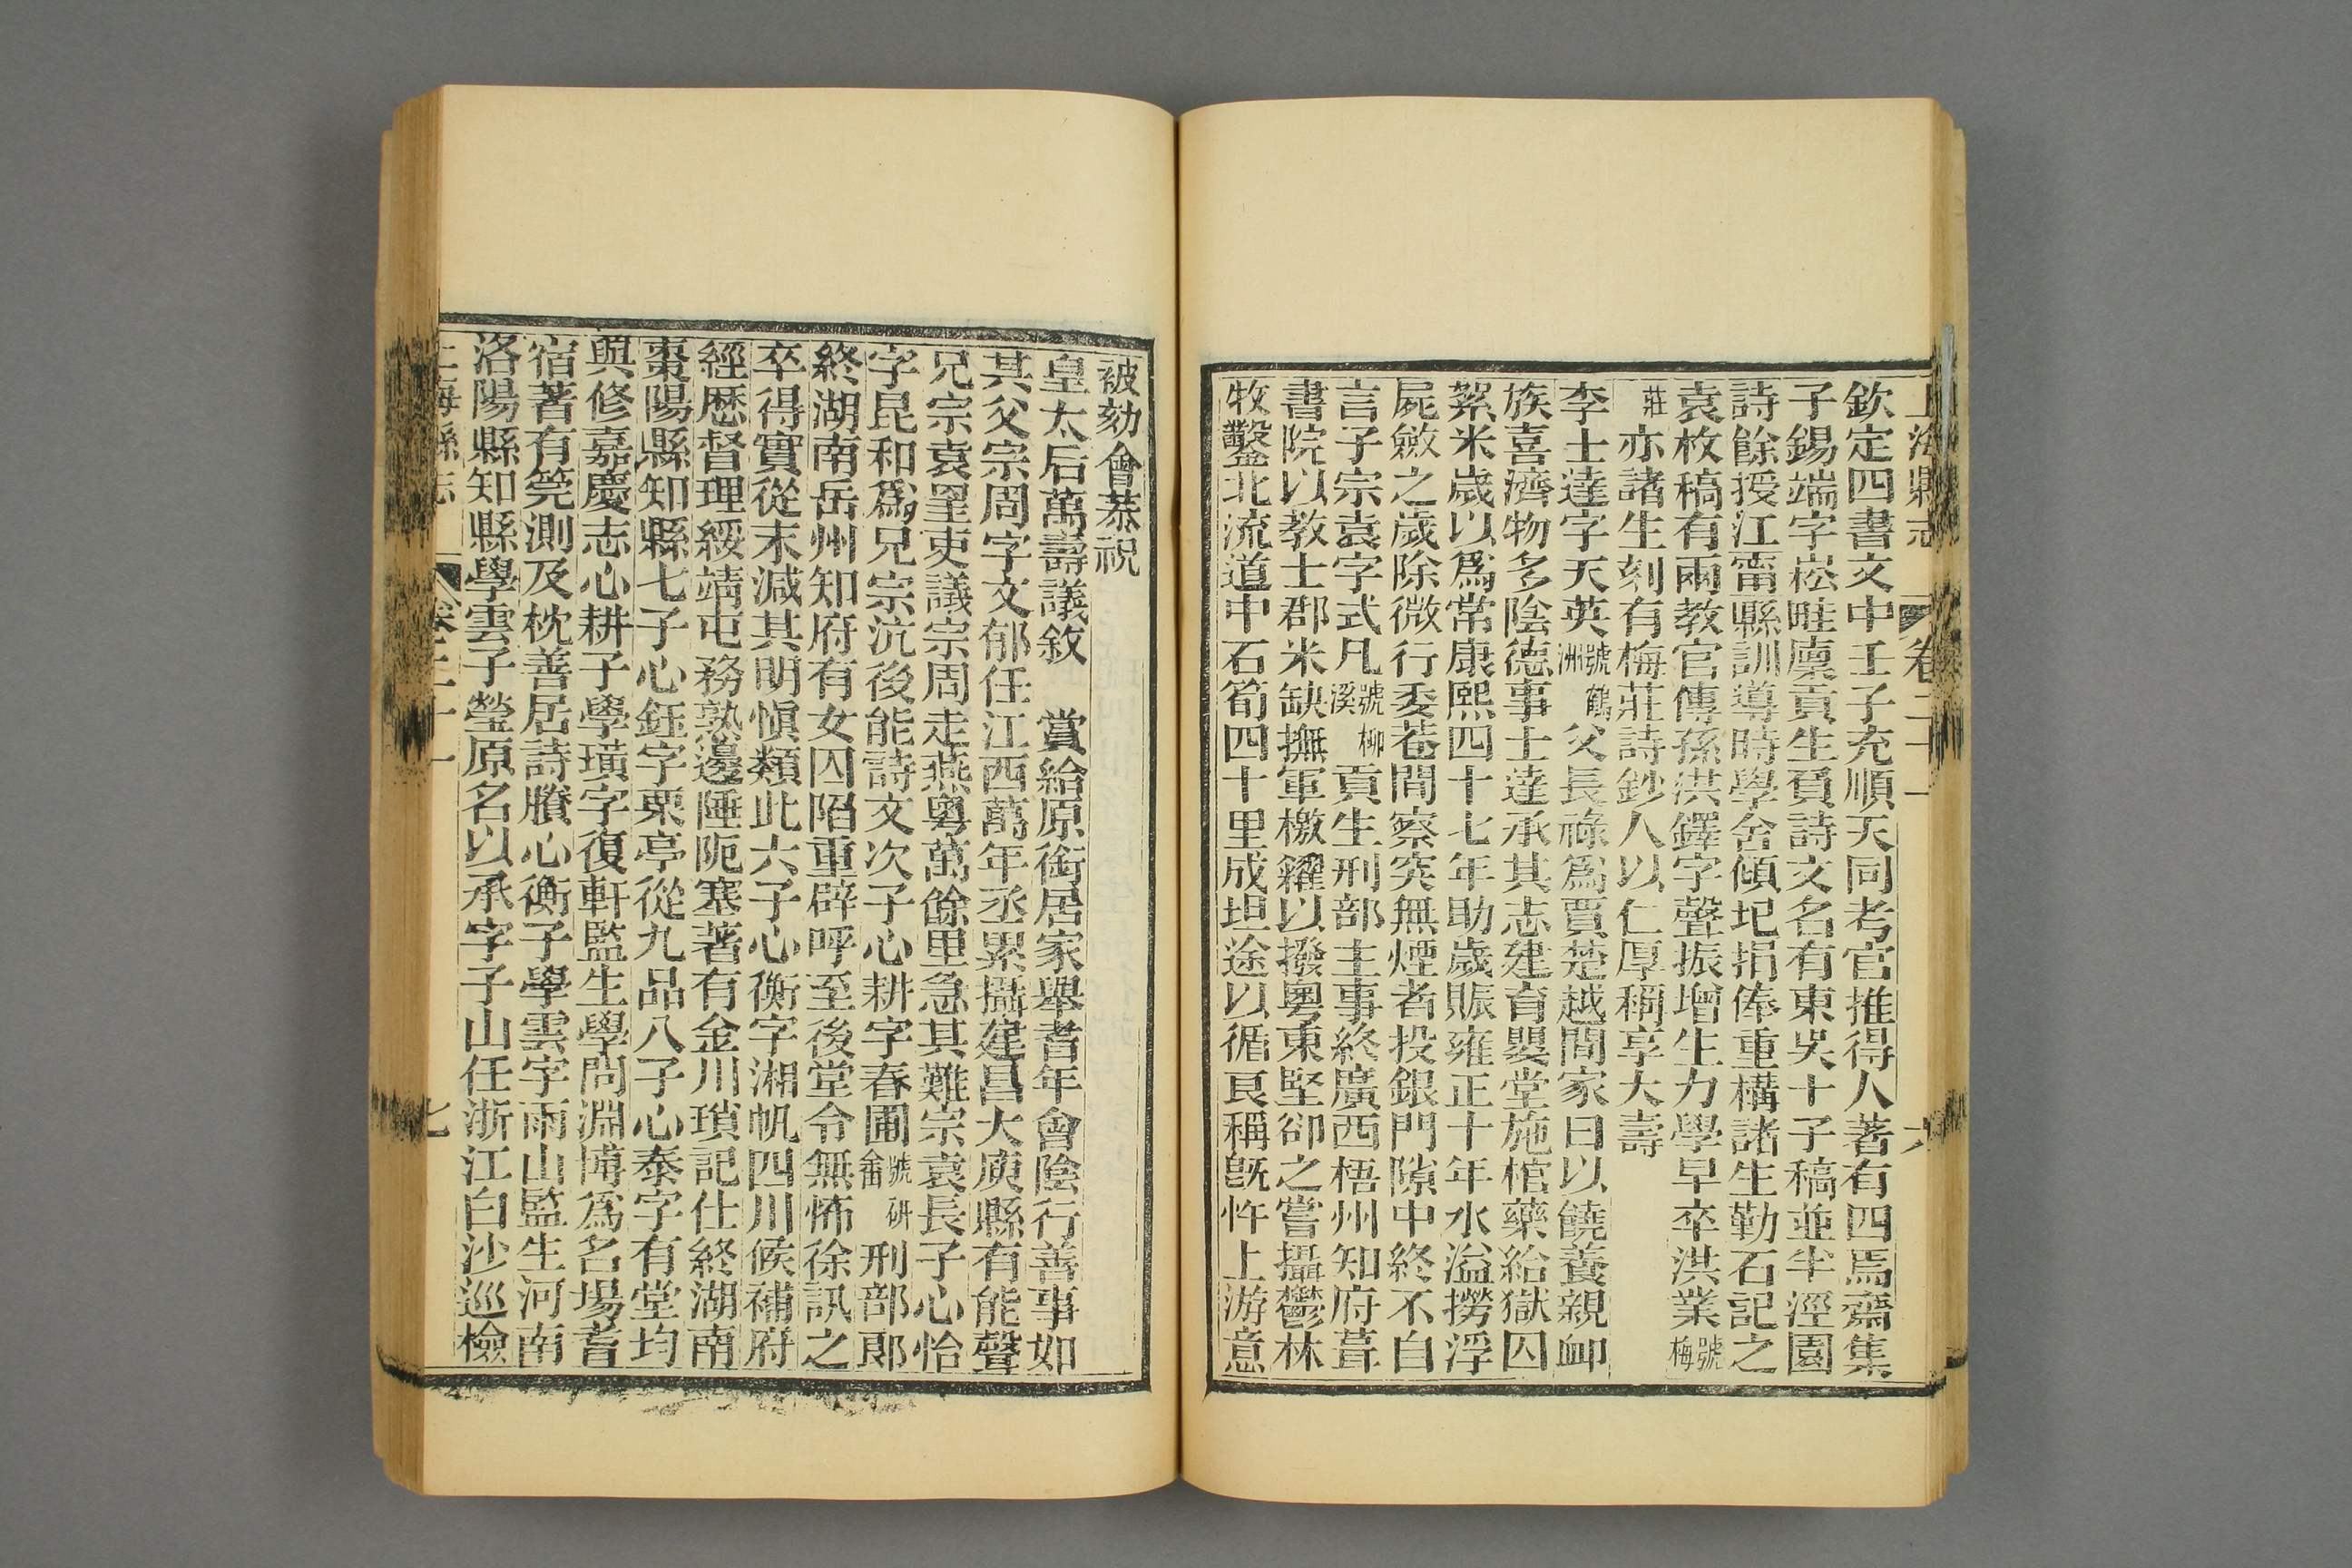 上海縣志 卷二十一 六
欽定四書文中壬子充順天同考官推得人著有四焉齋集
子錫端字崧畦廩貢生負詩文名有東吳十子稿並半涇園
詩餘授江甯縣訓導時學舍傾圮捐俸重構諸生勒石記之
袁枚稿有兩教官傳孫洪鐸字聲振增生力學早卒洪業號梅
莊亦諸生刻有梅莊詩鈔人以仁厚稱享大壽
李士達字天英號鶴洲父長祿為賈楚越間家日以饒養親卹
族喜濟物多陰德事士達承其志建育嬰堂施棺藥給獄囚
絮米歲以為常康熙四十七年助歲賑雍正十年水溢撈浮
屍斂之歲除微行委巷間察突無煙者投銀門隙中終不自
言子宗袁字式凡號柳溪貢生刑部主事終廣西梧州知府葺
書院以教士郡米缺撫軍檄糴以撥粵東堅卻之嘗攝鬱林
牧鑿北流道中石筍四十里成坦途以循良稱旣忤上游意
被劾會恭祝
皇太后萬壽議敘 賞給原銜居家舉耆年會陰行善事如
其父宗周字文郁任江西萬年丞累攝建昌大庾縣有能聲
兄宗袁罣吏議宗周走燕粵萬餘里急其難宗袁長子心怡
字昆和為兄宗沆後能詩文次子心耕字春圃號研畬刑部郎
終湖南岳州知府有女囚陷重辟呼至後堂令無怖徐訊之
卒得實從末減其明慎類此六子心衡字湘帆四川候補府
經歷督理綏靖屯務熟邊陲阨塞著有金川瑣記仕終湖南
棗陽縣知縣七子心鈺字栗亭從九品八子心泰字有堂均
與修嘉慶志心耕子學璜字復軒監生學問淵博為名場耆
宿著有筦測及枕善居詩賸心衡子學雲字雨山監生河南
洛陽縣知縣學雲子瑩原名以承字子山任浙江白沙巡檢
上海縣志 卷二十一 七